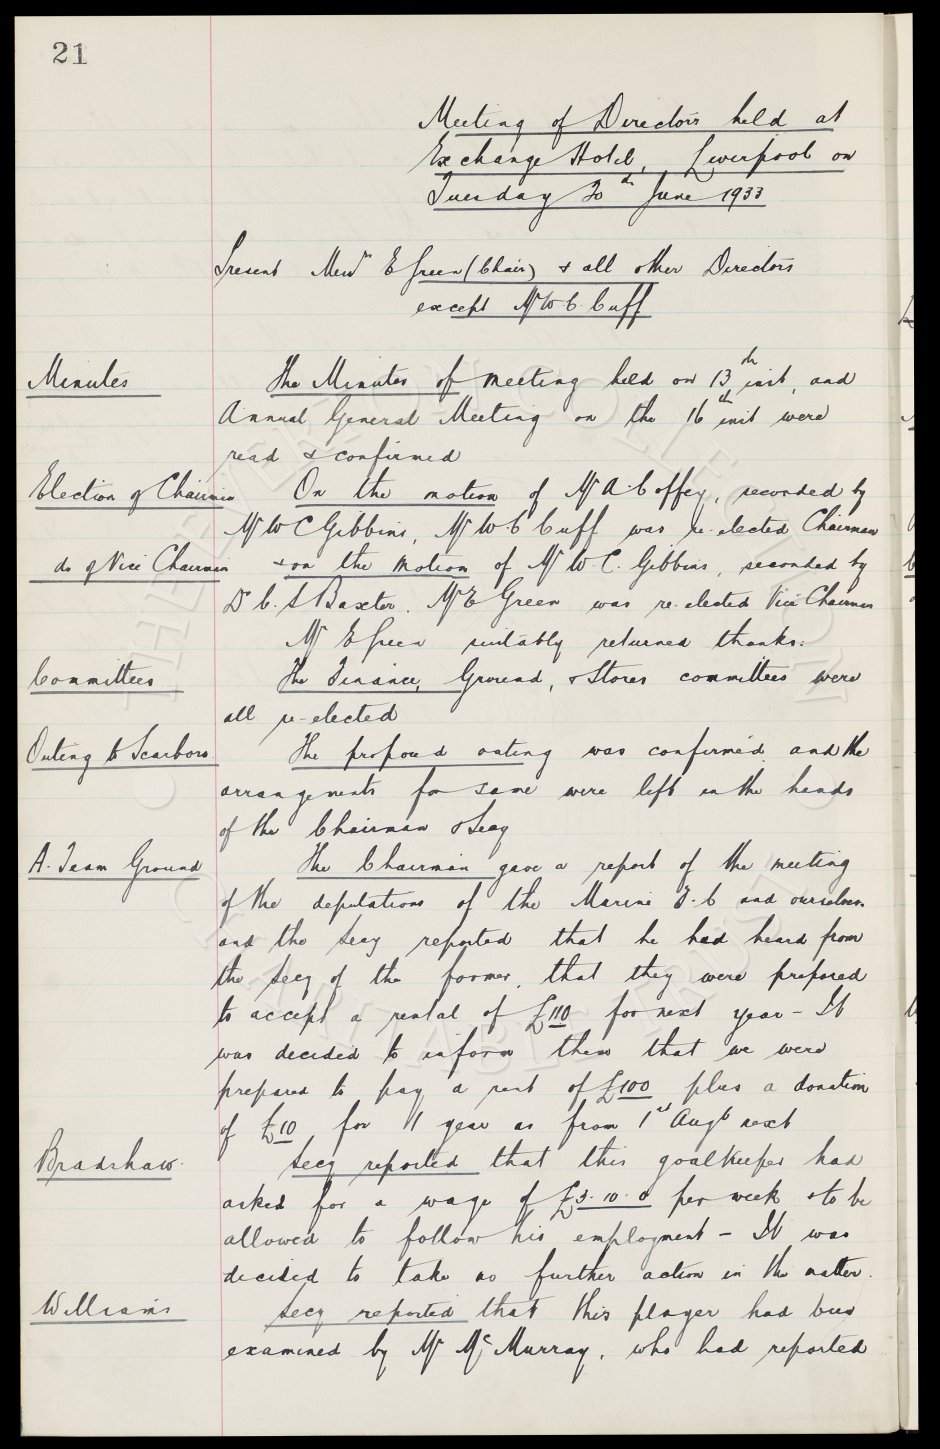 21
Meeting of Directors held at
Exchange Hotel, Liverpool on
Tuesday 20th June 1933
Present Messrs E Green (Chair) & all other Directors
except Mr W. C. Cuff
Minutes The Minutes of meeting held on 13th inst, and
Annual General Meeting on the 16th inst were
read & confirmed
Election of Chairman On the motion of Mr A. Coffey, seconded by
Mr W C Gibbins, Mr W C Cuff was re-elected Chairman
do of Vice Chairman & on the motion of Mr W. C. Gibbins, seconded by
Dr C. S Baxter. Mr E Green was re-elected Vice Chairman
Mr E Green suitably returned thanks.
Committees The Finance, Ground, & Stores committees were
all re-elected
Outing to Scarboro The proposed outing was confirmed and the
arrangements for same were left in the hands
of the Chairman & Secy
A. Team Ground The Chairman gave a report of the meeting
of the deputations of the Marine F. C and ourselves.
and the Secy reported that he had heard from
the Secy of the former, that they were prepared
to accept a rental of £110 for next year - It
was decided to inform them that we were
prepared to pay a rent of £100 plus a donation
of £10 for 1 year as from 1st Augt next
Bradshaw. Secy reported that this goalkeeper had
asked for a wage of £3. 10. 0 per week & to be
allowed to follow his employment - It was
decided to take no further action in the matter.
Williams Secy reported that this player had been
examined by Mr McMurray, who had reported
THE EVERTON COLLECTION
CHARITABLE TRUST